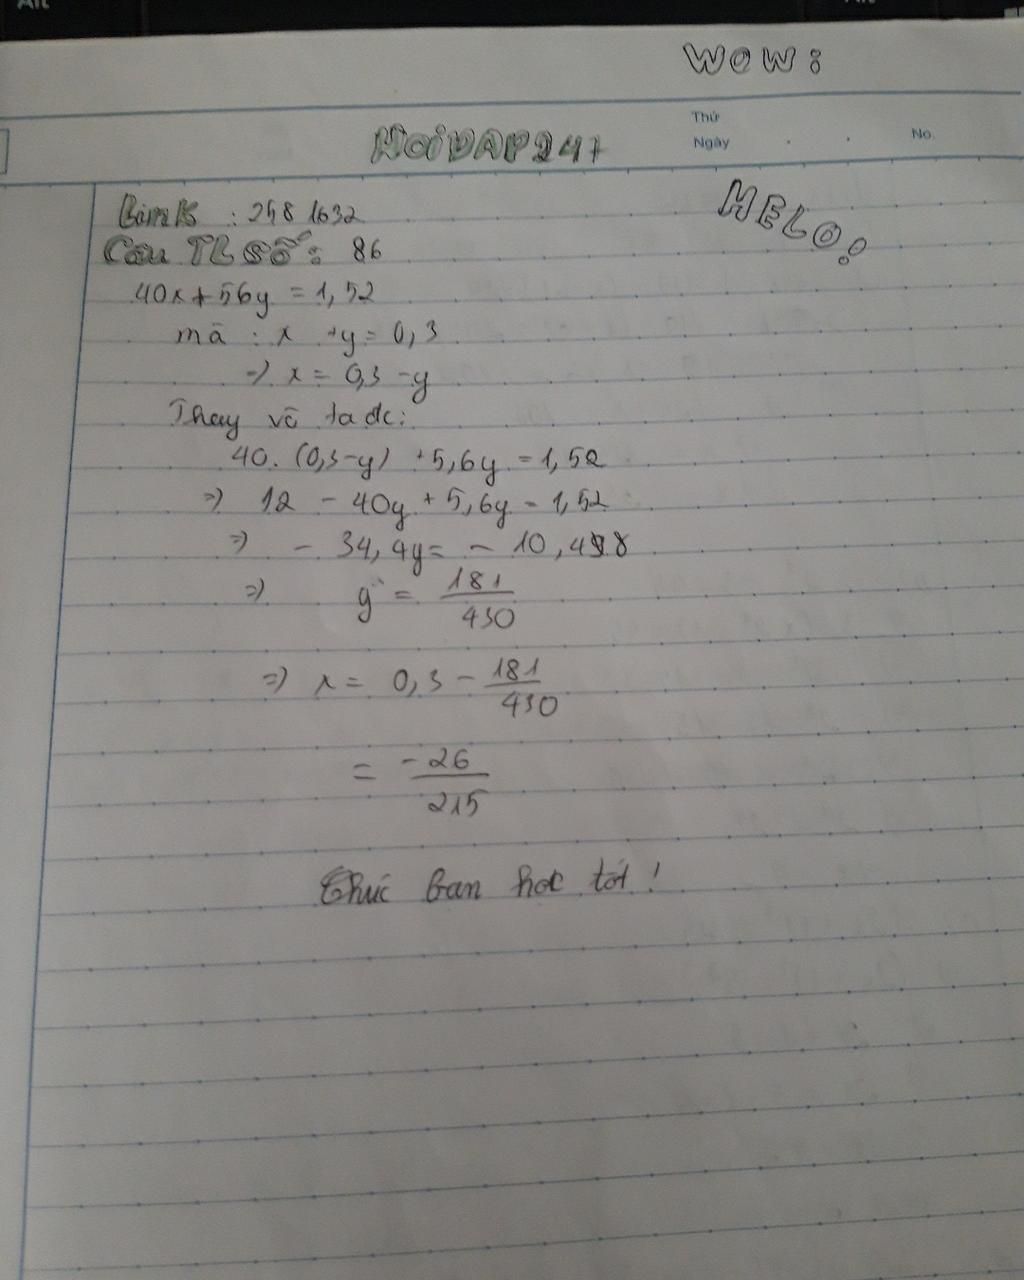 Alt
Alt
WOW:
HOiDAP247
Thứ
Ngày
No.
HELO!
: 2481632
Câu TL Số: 86
40x + 56y = 1,52
mà : x + y = 0,3
=> x = 0,3 - y
Thay vô ta đc:
40. (0,3-y) + 5,6y = 1,52
=> 12 - 40y + 5,6y = 1,52
=> - 34,4y = - 10,48
=> y = 181/430
=> x = 0,3 - 181/430
= -26/215
Chúc bạn học tốt !